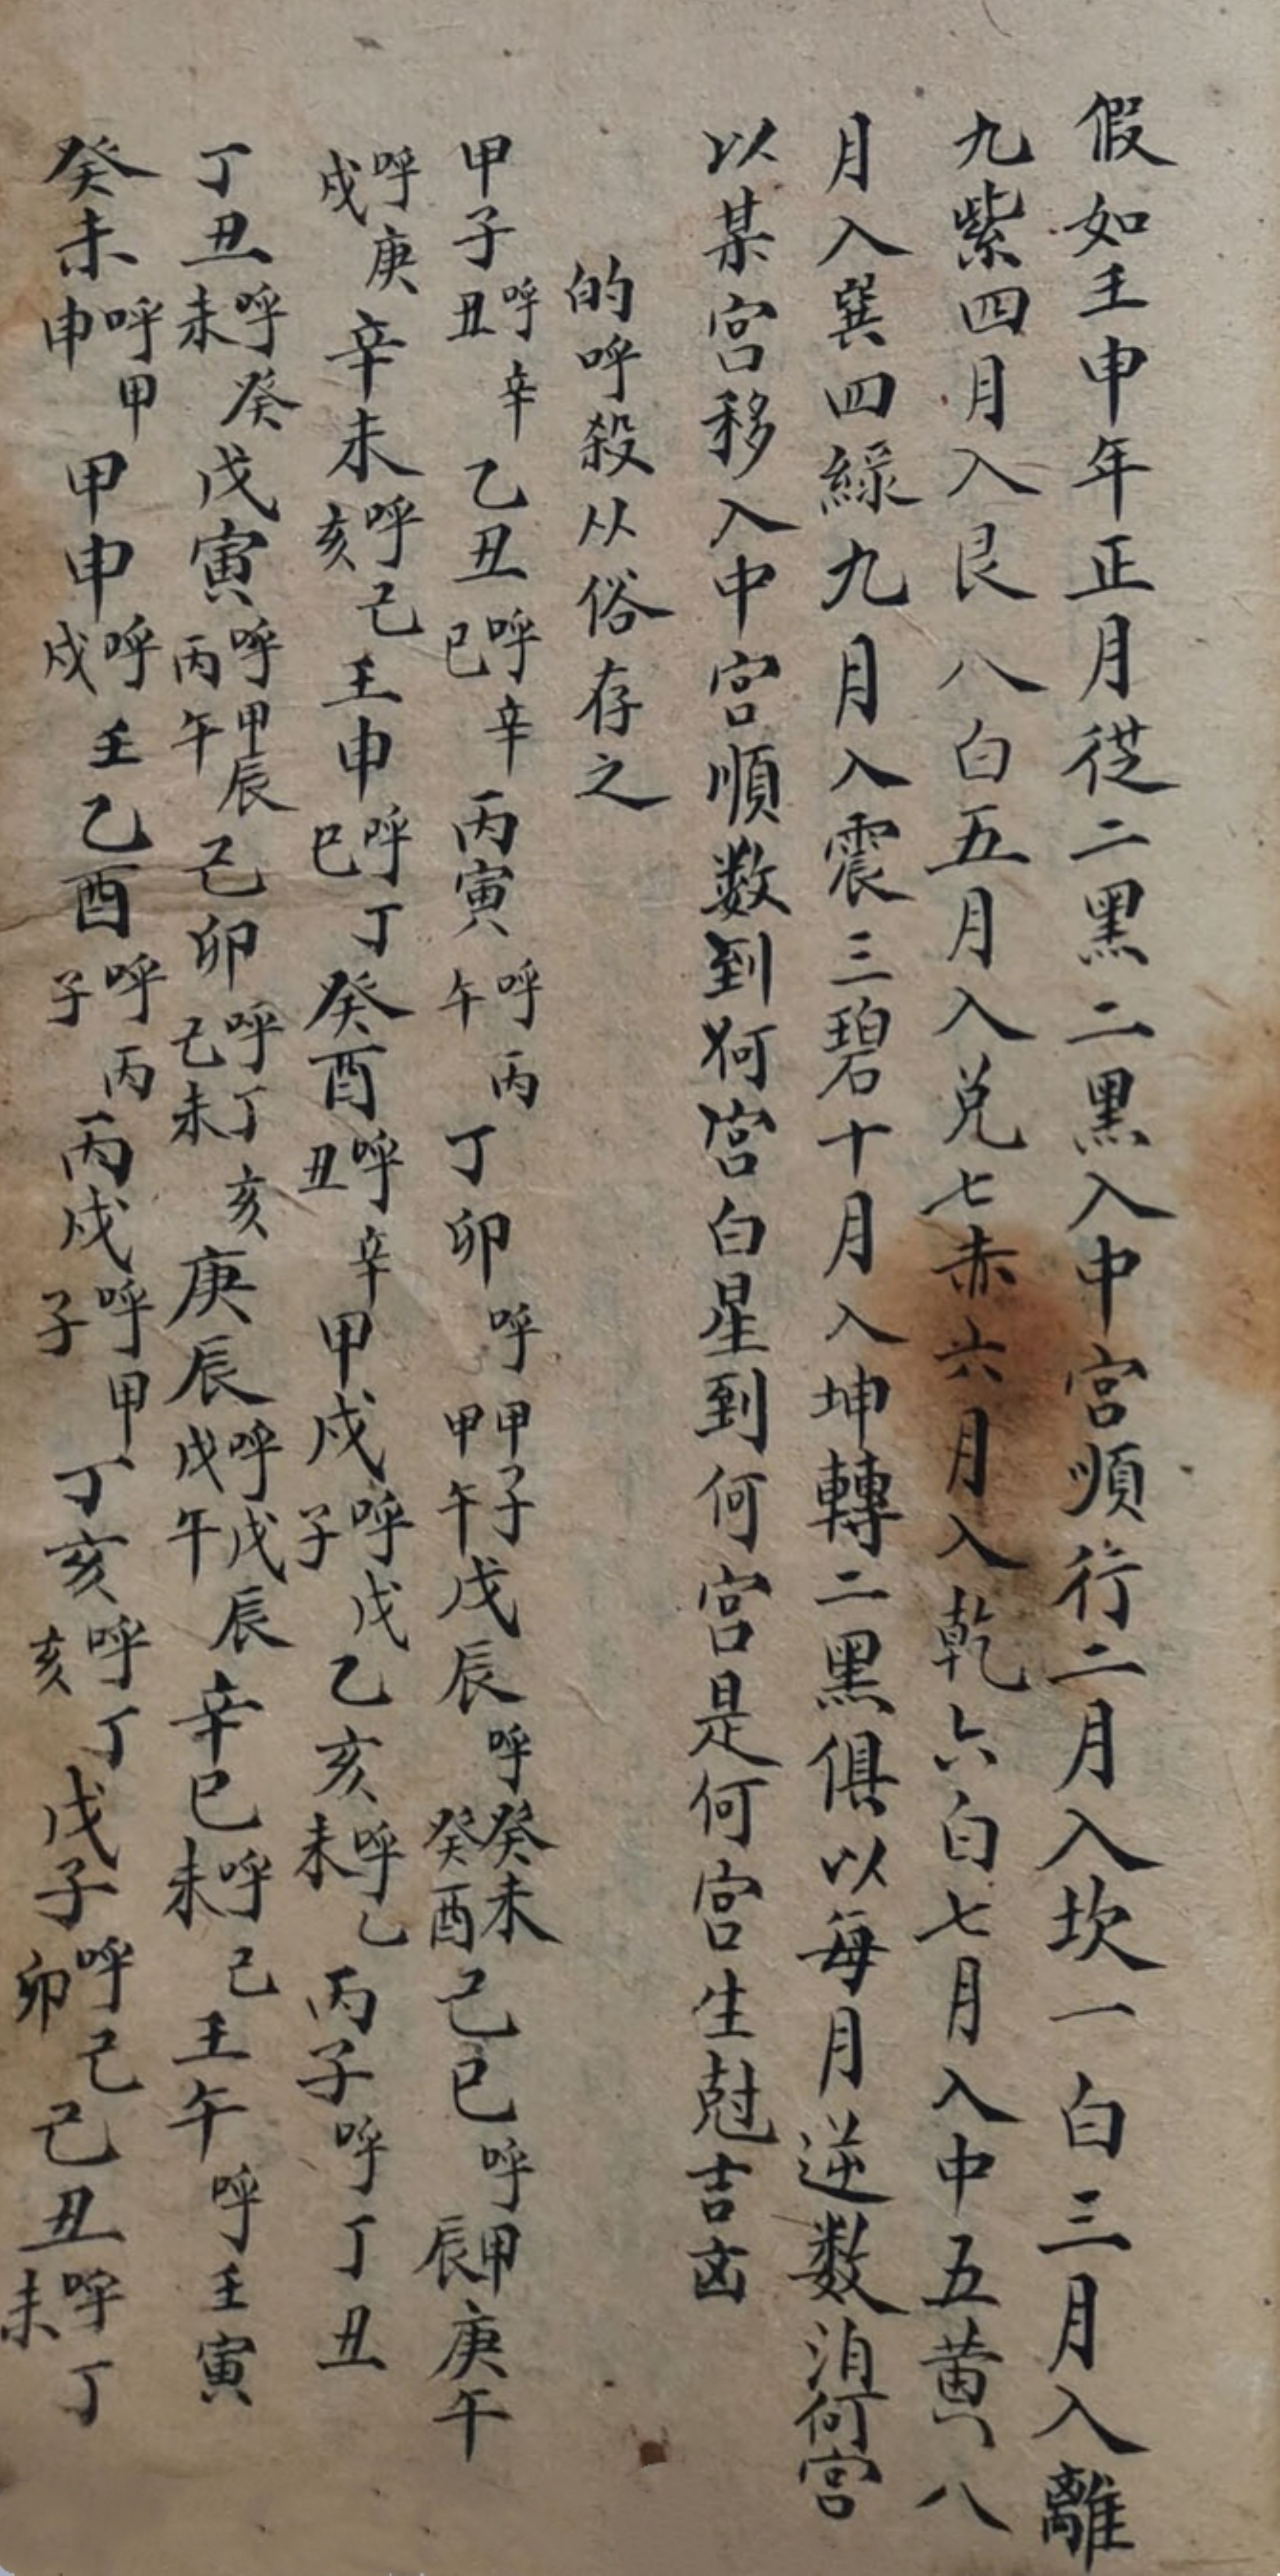 假如壬申年正月從二黑二黑入中宮順行二月入坎一白三月入離
九紫四月入艮八白五月入兌七赤六月入乾六白七月入中五黄八
月入巽四綠九月入震三碧十月入坤轉二黑俱以每月逆数泊何宮
以某宮移入中宮順数到何宮白星到何宮是何宮生尅吉凶
的呼殺从俗存之
甲子呼辛丑乙丑呼辛巳丙寅呼丙午丁卯呼甲子甲午戊辰呼癸未癸酉己巳呼甲辰庚午
呼庚戌辛未呼己亥壬申呼丁巳癸酉呼辛丑甲戌呼戊子乙亥呼乙未丙子呼丁丑
丁丑呼癸未戊寅呼甲辰丙午己卯呼丁亥己未庚辰呼戊辰戊午辛巳呼己未壬午呼壬寅
癸未呼甲申甲申呼壬戌乙酉呼丙子丙戌呼甲子丁亥呼丁亥戊子呼己卯己丑呼丁未